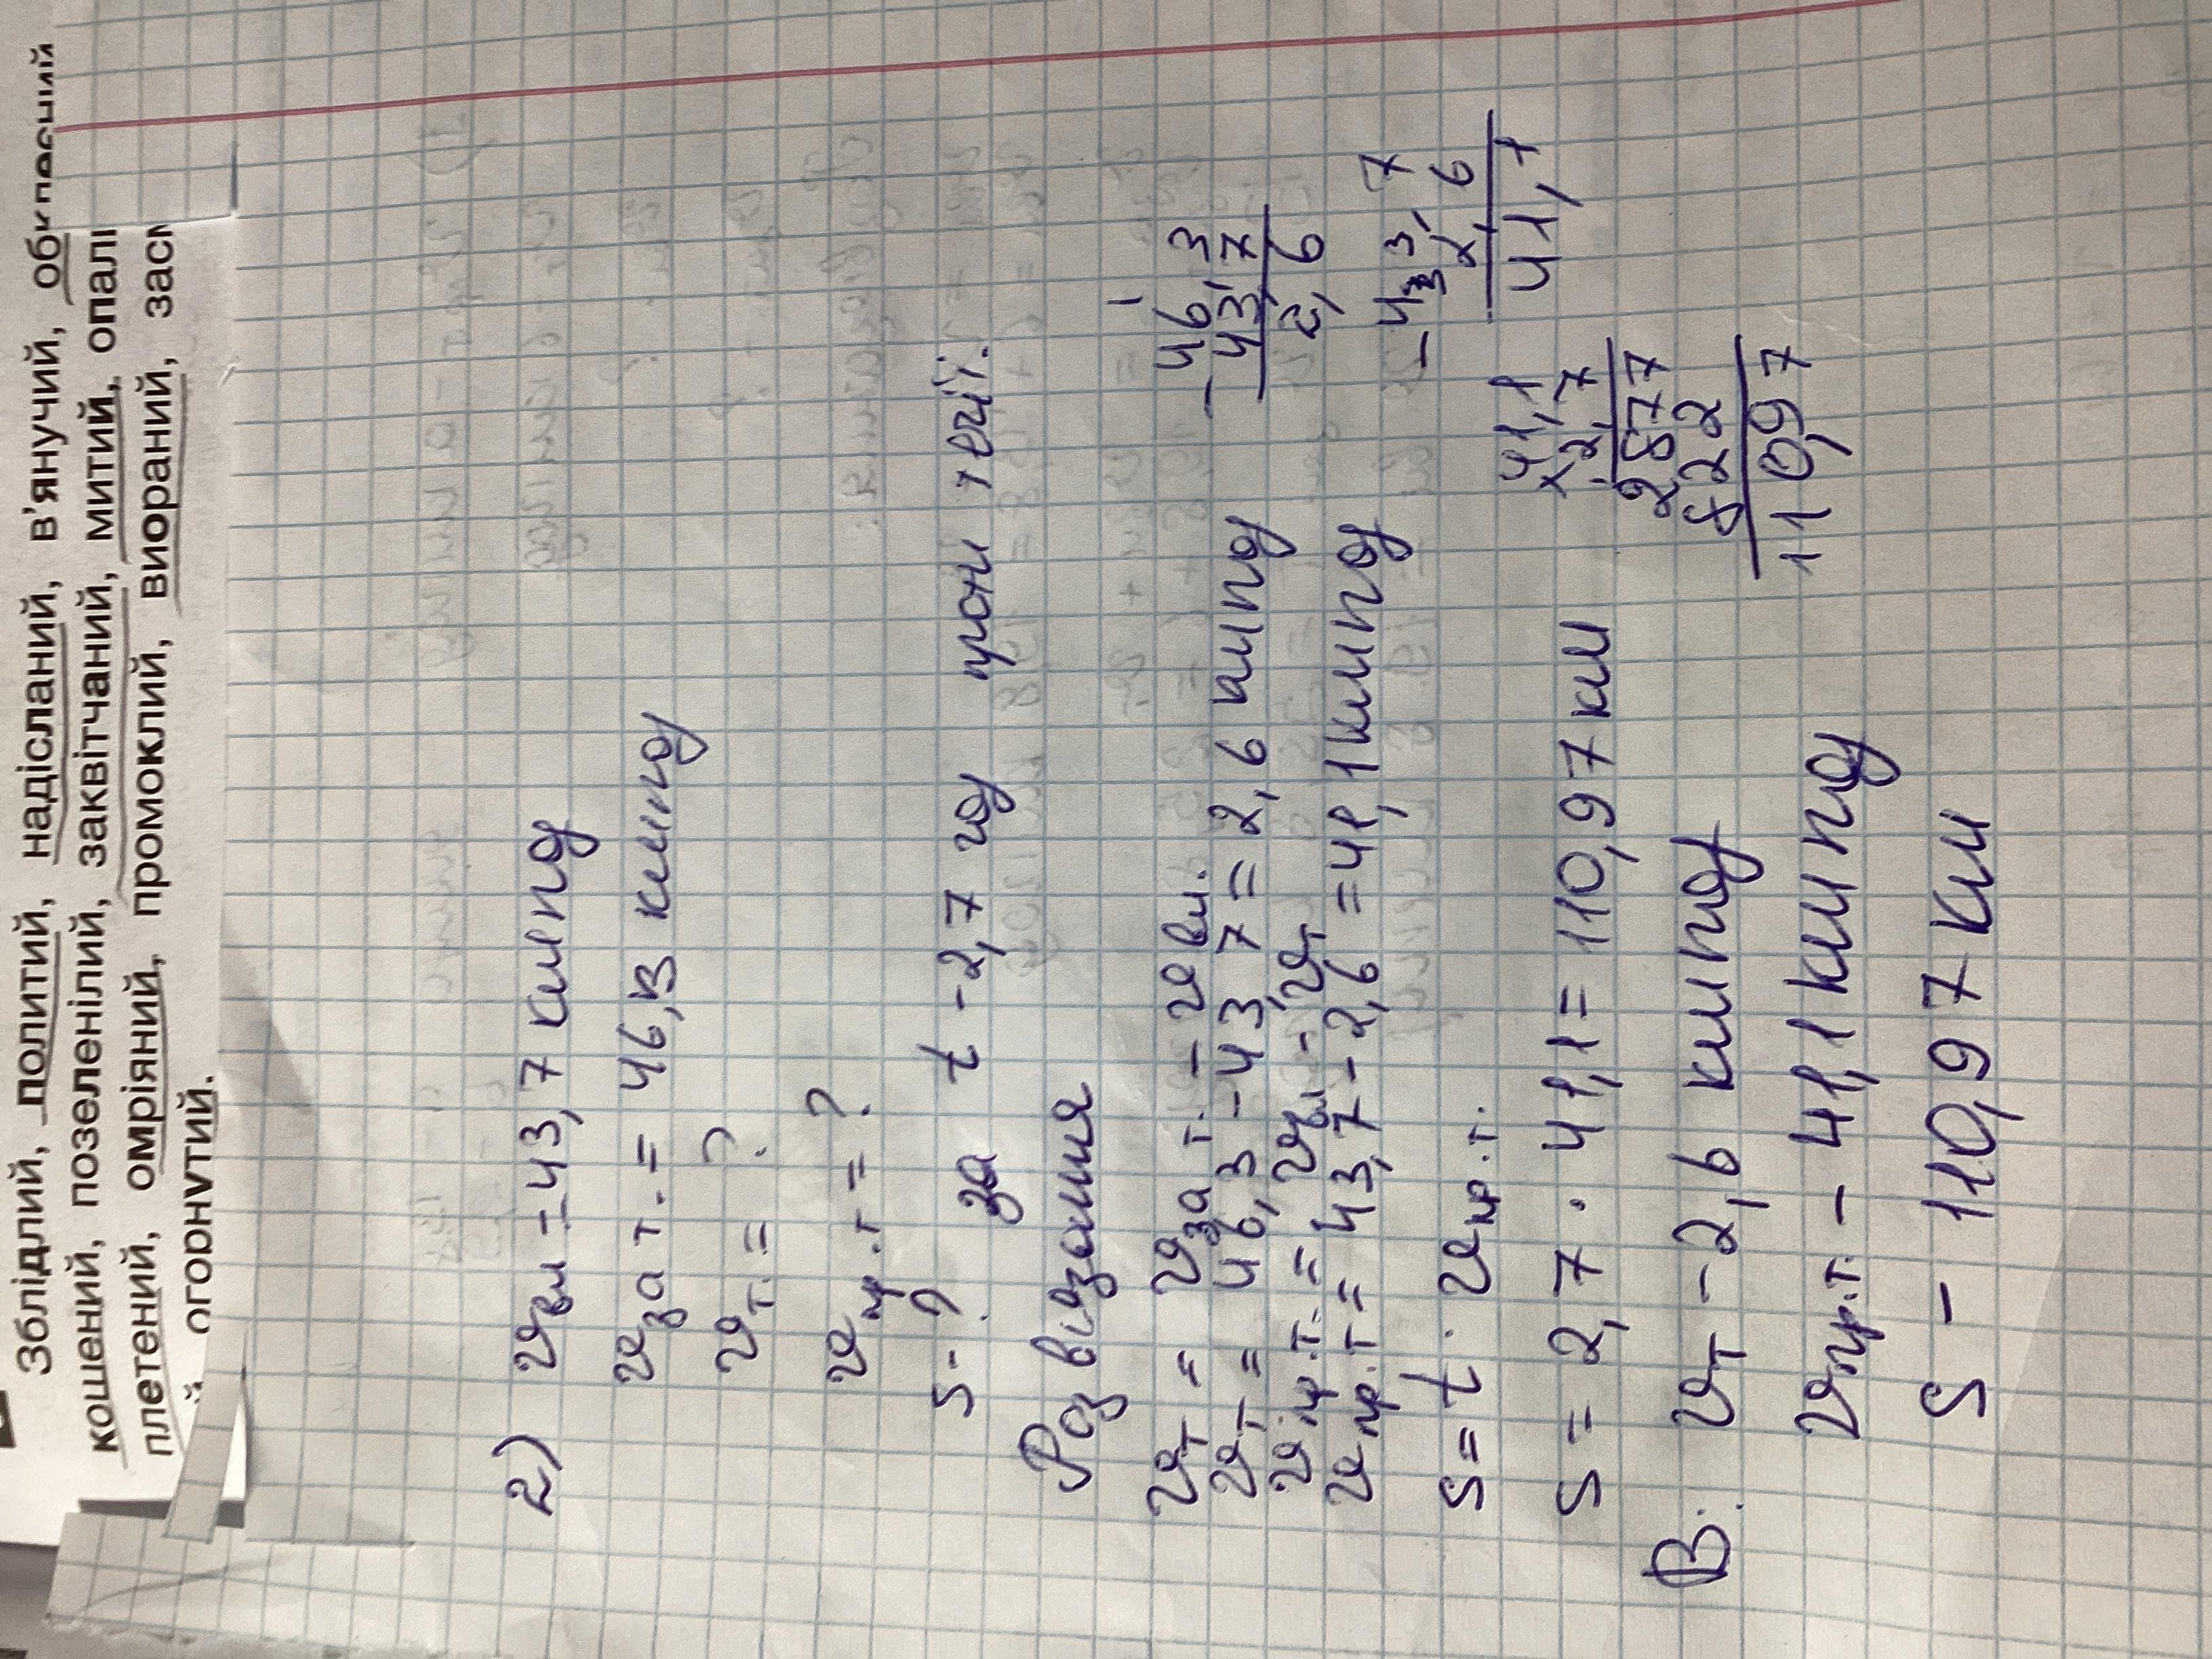 Збліднілий, политий, надісланий, в'янучий,
кошений, позеленілий, заквітчаний, митий, опалі
плетений, омріяний, промоклий, виораний, засм
огорнутий.
2) vвл = 43,7 км/год
vза т. = 46,3 км/год
vт. = ?
vпр.т = ?
S - ? за t - 2,7 год проти течії.
Розв'язання
vт = vза т. - vвл.
vт = 46,3 - 43,7 = 2,6 км/год
vпр.т. = vвл - vт
vпр.т = 43,7 - 2,6 = 41,1 км/год
S = t · vпр.т.
S = 2,7 · 41,1 = 110,97 км
В: vт - 2,6 км/год
vпр.т. - 41,1 км/год
S - 110,97 км
1
- 46,3
43,7
2,6
- 43,7
2,6
41,1
41,1
× 2,7
2877
822
110,97